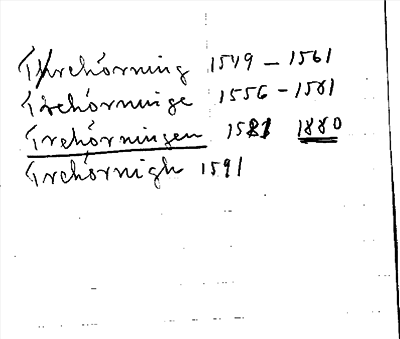 Threhörning 1549 - 1561
Trehörninge 1556 - 1581
Trehörningen 1581 1880
Trehörnigh 1591